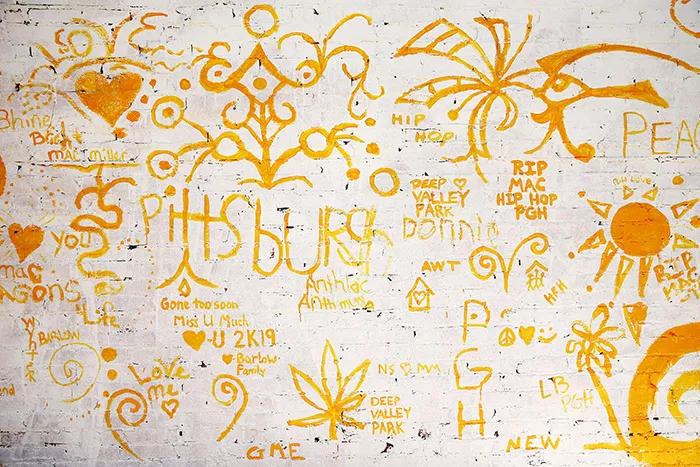 Shine
Bright
MAC Miller
HIP
HOP
PEAC
RIP
MAC
HIP HOP
PGH
DEEP ♡
VALLEY
PARK
Donnie
LOVE
PittsburgH
YOU
MAC
AGONS
Life
Gone too soon
Miss U Much
♥U 2K19
♥-Barlow
Family
AWT
HFH
RIP
MAC
WATER
BARLOW
Love
me ♡
PGH
☮♥☺
DEEP
VALLEY
PARK
LB
PGH
GME
NEW